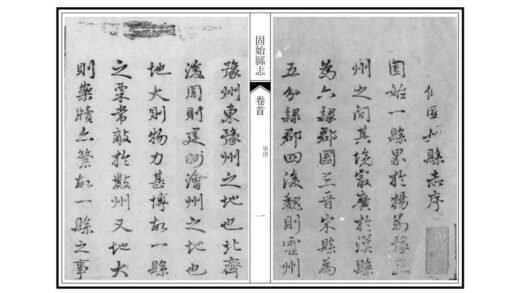 縣志序
固始一縣界於揚荊豫三
州之間其境最廣於漢縣
為六隸郡國三晉宋縣為
五分隸郡四後魏則霍州
固始縣志
卷首
序
一
豫州東豫州之地也北齊
後周則建州澮州之地也
地大則物力甚博故一縣
之粟常敵於數州又地大
則案牘亦繁故一縣之事